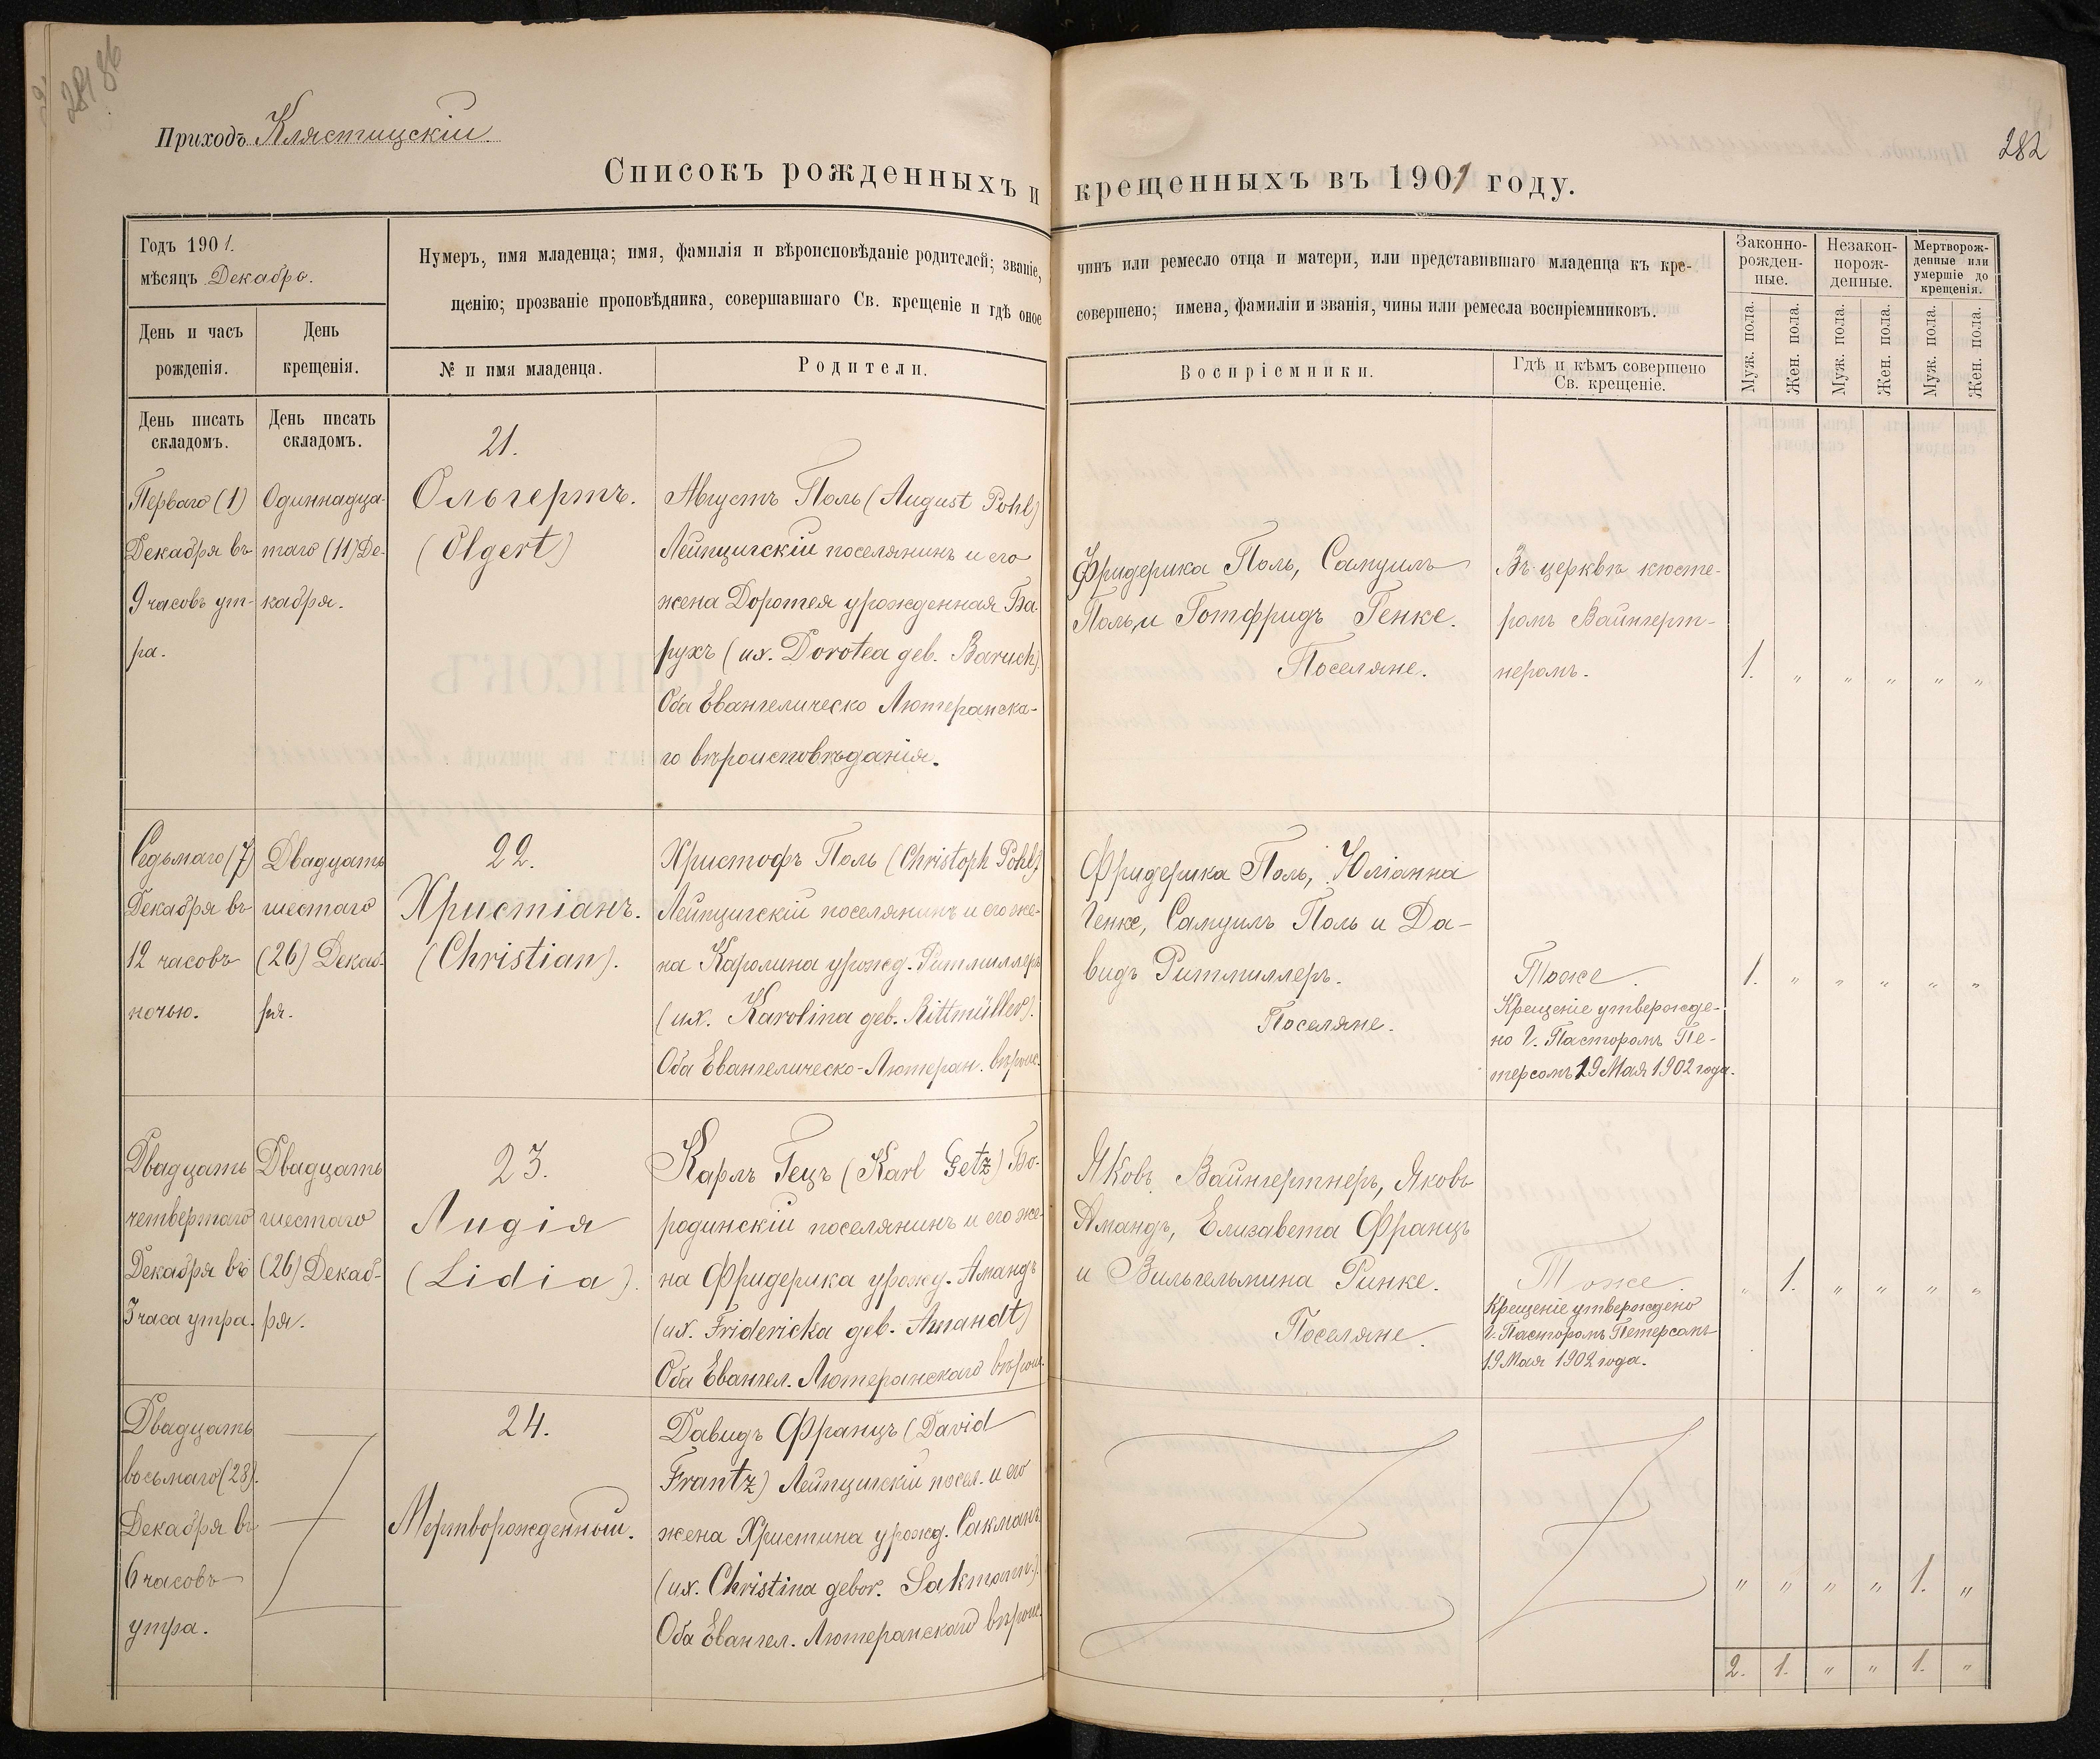 281 86
282
Приходъ Клястицскій.
Списокъ рожденныхъ и крещенныхъ въ 1901 году.
Годъ 1901.
мѣсяцъ Декабрь.
Нумеръ, имя младенца; имя, фамилія и вѣроисповѣданіе родителей; званіе, чинъ или ремесло отца и матери, или представившаго младенца къ кре-
щенію; прозваніе проповѣдника, совершавшаго Св. крещеніе и гдѣ оное совершено; имена, фамиліи и званія, чины или ремесла воспріемниковъ.
День и часъ
рожденія.
День
крещенія.
№ и имя младенца.
Родители.
Воспріемники.
Гдѣ и кѣмъ совершено
Св. крещеніе.
Законно-
рожден-
ные.
Незакон-
норож-
денные.
Мертворож-
денные или
умершіе до
крещенія.
Муж. пола.
Жен. пола.
Муж. пола.
Жен. пола.
Муж. пола.
Жен. пола.
День писать
складомъ.
День писать
складомъ.
Перваго (1)
Декабря въ
9 часовъ ут-
ра.
Одиннадца-
таго (11) Де-
кабря.
21.
Ольгертъ.
(Olgert)
Августъ Поль (August Pohl)
Лейпцигскій поселянинъ и его
жена Доротея урожденная Ба-
рухъ (их. Dorotea geb. Baruch).
Оба Евангелическо Лютеранска-
го вѣроисповѣданія.
Фридерика Поль, Самуилъ
Поль и Готфридъ Генке.
Поселяне.
Въ церквѣ кюсте-
ромъ Вайнгерт-
неромъ.
1. " " " " "
Седьмаго (7)
Декабря въ
12 часовъ
ночью.
Двадцать
шестаго
(26) Декаб-
ря.
22.
Христіанъ.
(Christian).
Христофъ Поль (Christoph Pohl),
Лейпцигскій поселянинъ и его же-
на Каролина урожд. Ритмиллеръ
(их. Karolina geb. Rittmüller).
Оба Евангелическо-Лютеран. вѣроис.
Фридерика Поль, Юліанна
Генке, Самуилъ Поль и Да-
видъ Ритмиллеръ.
Поселяне.
Тоже.
Крещеніе утвержде-
но Г. Пасторомъ Пе-
терсомъ 19 Мая 1902 года.
1. " " " " "
Двадцать
четвертаго
Декабря въ
3 часа утра.
Двадцать
шестаго
(26) Декаб-
ря.
23.
Лидія
(Lidia).
Карлъ Гецъ (Karl Getz) Бо-
родинскій поселянинъ и его же-
на Фридерика урожд. Амандъ
(их. Fridericka geb. Amandt)
Оба Евангел. Лютеранскаго вѣроис.
Яковъ Вайнгертнеръ, Яковъ
Амандъ, Елизавета Францъ
и Вильгельмина Ринке.
Поселяне.
Тоже.
Крещеніе утверждено
Г. Пасторомъ Петерсомъ
19 Мая 1902 года.
" 1. " " " "
Двадцать
восьмаго (28).
Декабря въ
6 часовъ
утра.
24.
Мертворожденный.
Давидъ Францъ (David
Frantz) Лейпцигскій посел. и его
жена Христина урожд. Сакманъ
(их. Christina gebor. Sakmann.).
Оба Евангел. Лютеранскаго вѣроис.
" " " " 1. "
2. 1. " " 1. "